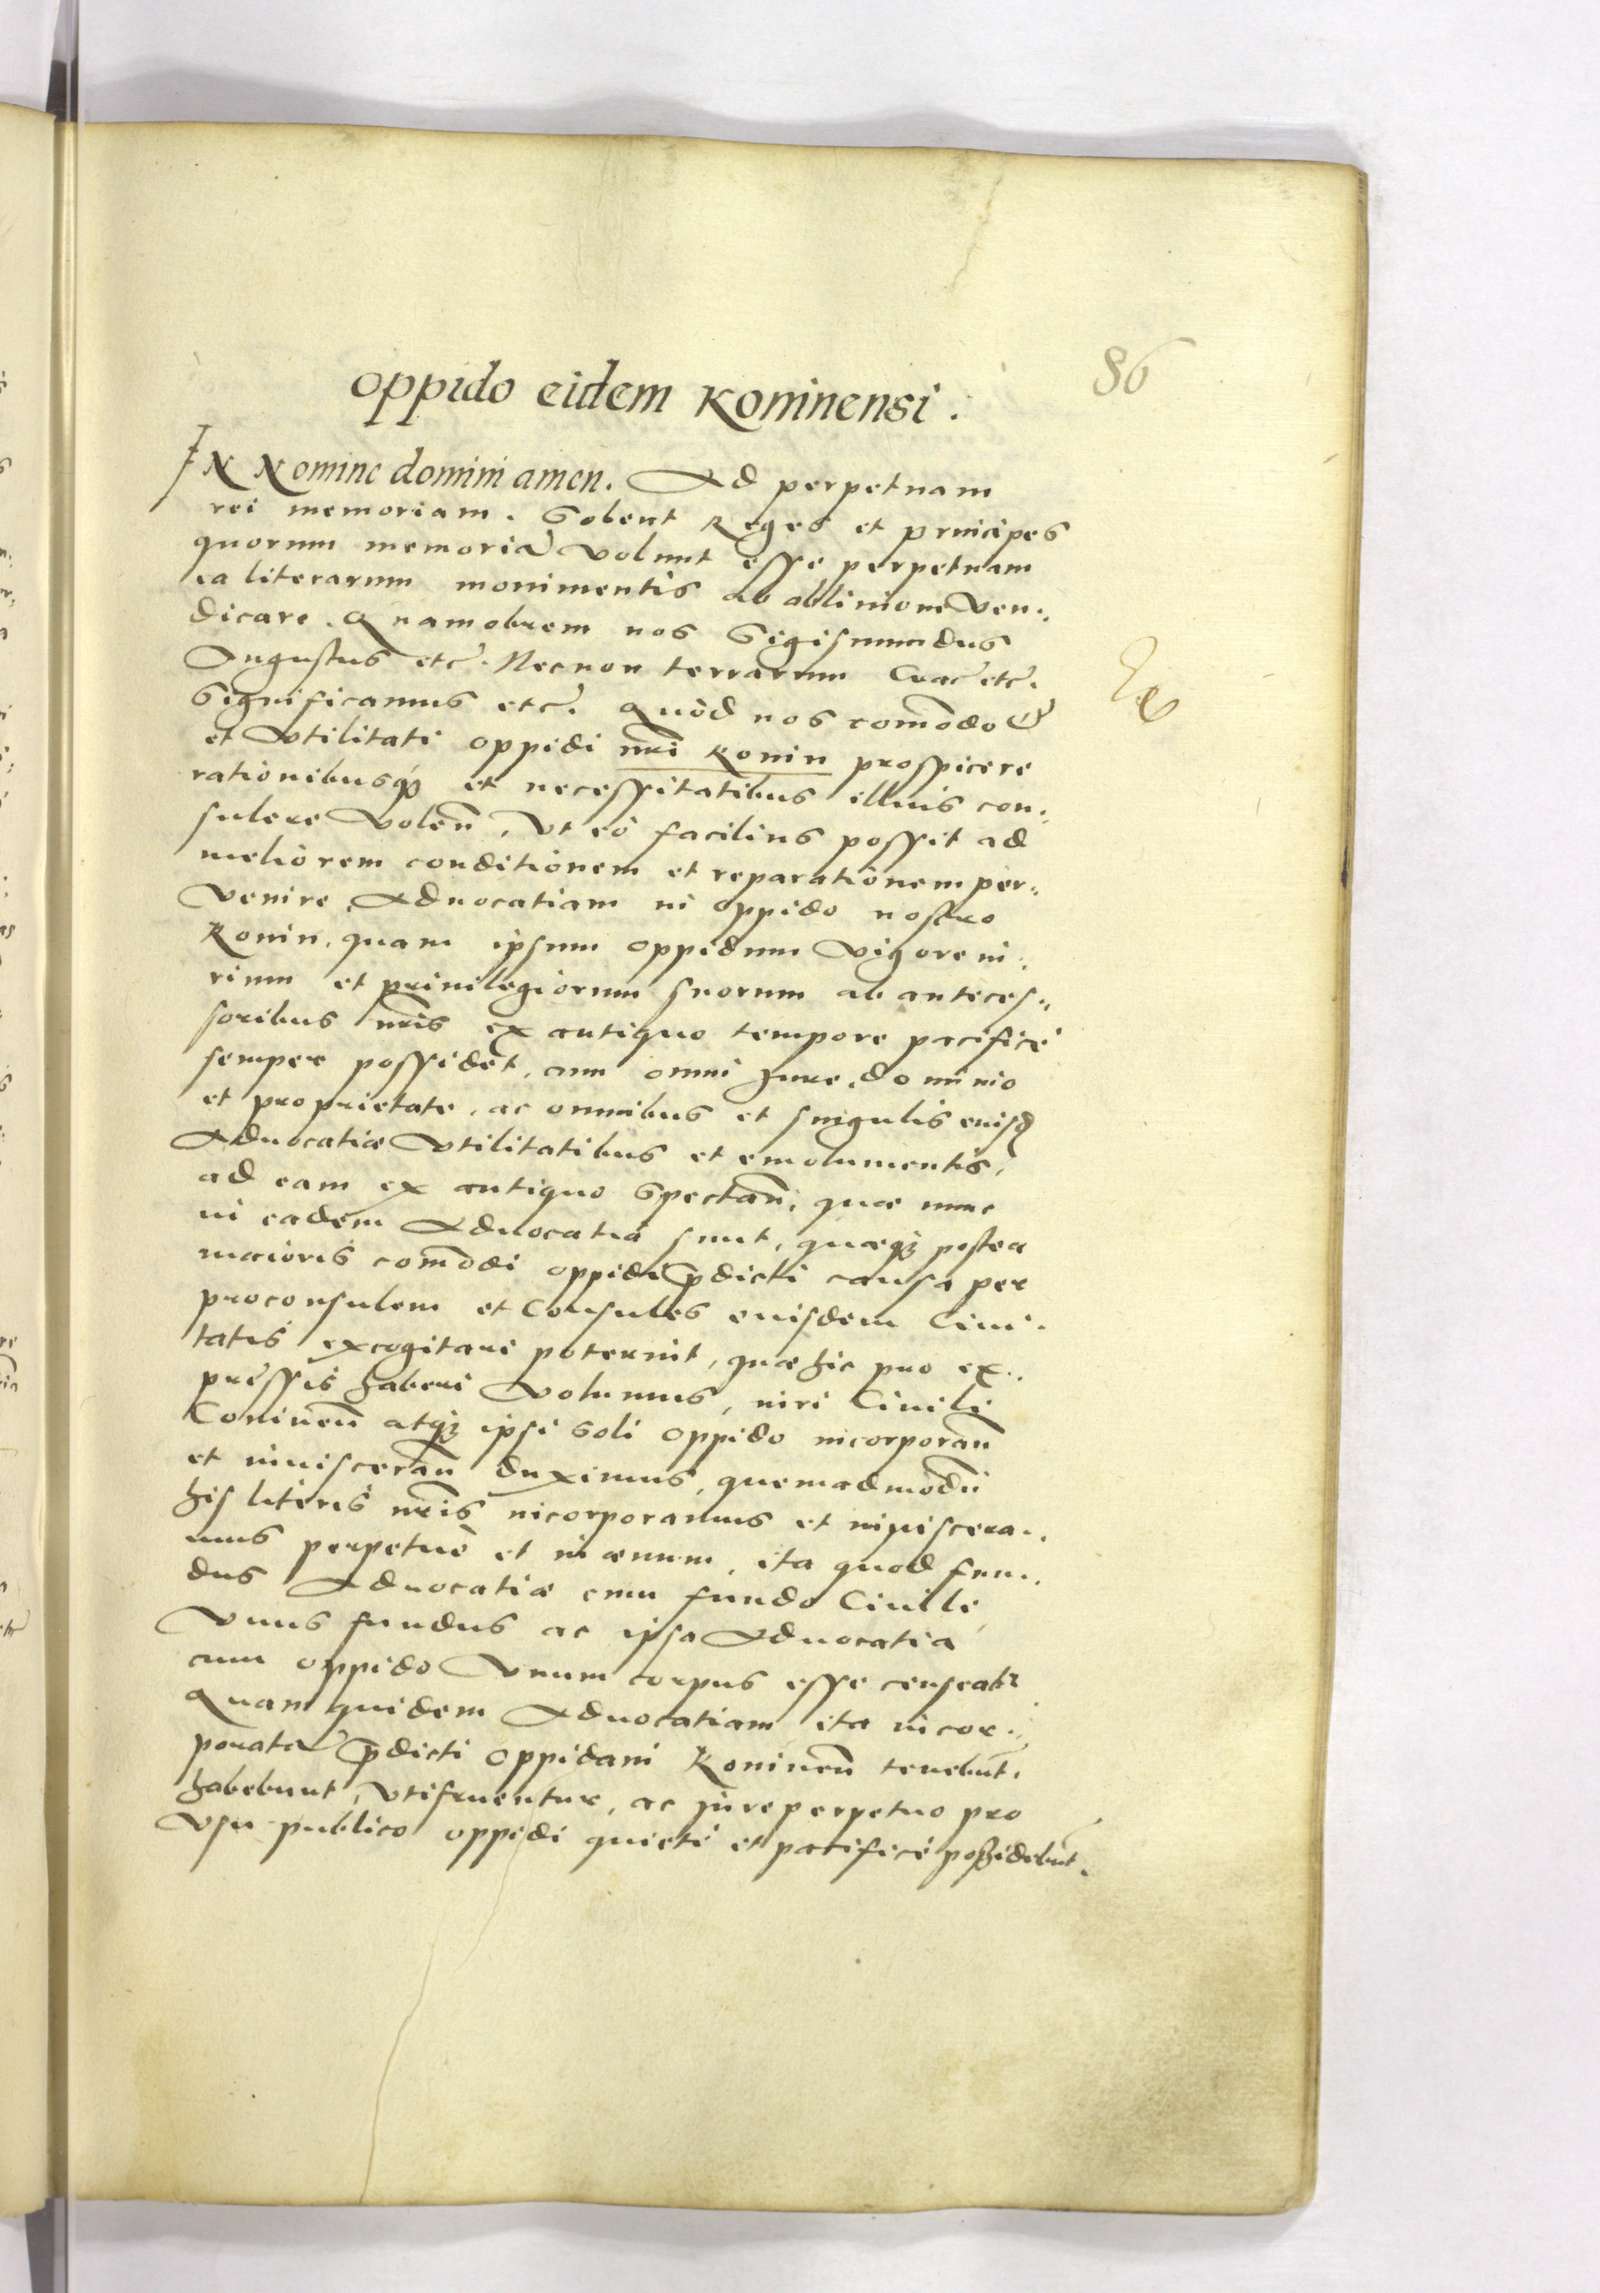 86
oppido eidem Koninensi.
IN Nomine domini amen. Ad perpetuam
rei memoriam. Solent Reges et principes
quorum memoriā volunt esse perpetuam
ea literarum monimentis ab oblivione ven..
dicare. Quamobrem nos Sigismundus
Augustus etc. Necnon terrarum Crac etc.
Significamus etc. Quòd nos com̄odo
et vtilitati oppidi nr̄i Konin prospicere
rationibusq3 et necessitatibus illius con..
sulere volen̄, vt eò facilius possit ad
meliorem conditionem et reparationem per..
venire, Aduocatiam in oppido nostro
Konin, quam ipsum oppidum vigore iu..
rium et priuilegiorum suorum ab anteces..
soribus nr̄is ex antiquo tempore pacificè
semper possidet, cum omni Jure, dominio
et proprietate, ac omnibus et singulis euisd
Aduocatiæ vtilitatibus et emolumentis,
ad eam ex antiquo spectan̄, quæ nunc
in eadem Aduocatia sunt, quæq3 postea
maioris com̄odi oppidi p̄dicti causa per
proconsulem et Consules euisdem Ciui..
tatis excogitari poterunt, quæ hic pro ex..
pressis haberi volumus, iuri Ciuili
Coninen̄ atq3 ipsi soli oppido incorporan̄
et inuisceran̄ duximus, quemadmodū
his literis nr̄is incorporamus et inuiscera..
mus perpetuè et in æuum, ita quod fun..
dus Aduocatiæ cum fundo Ciuili
vnus fundus ac ipsa Aduocatia
cum oppido vnum corpus esse censeatr
Quam quidem Aduocatiam ita incor..
poratā p̄dicti oppidani Koninen̄ tenebūt,
habebunt, vtifruentur, ac iure perpetuo pro
vsu publico oppidi quietè et pacificè possidebūt.